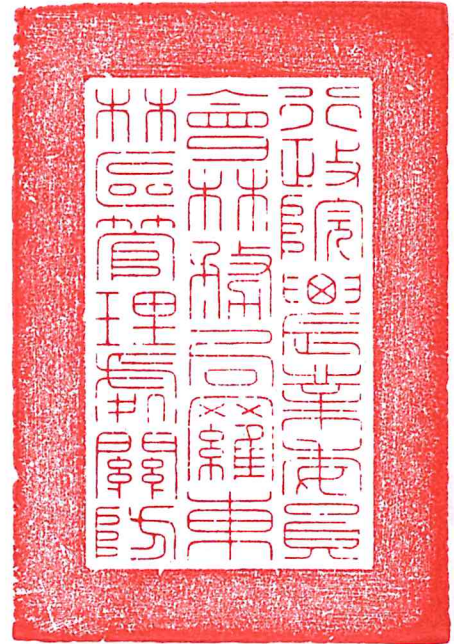 行政院農業委員
會林務局羅東
林區管理處關防